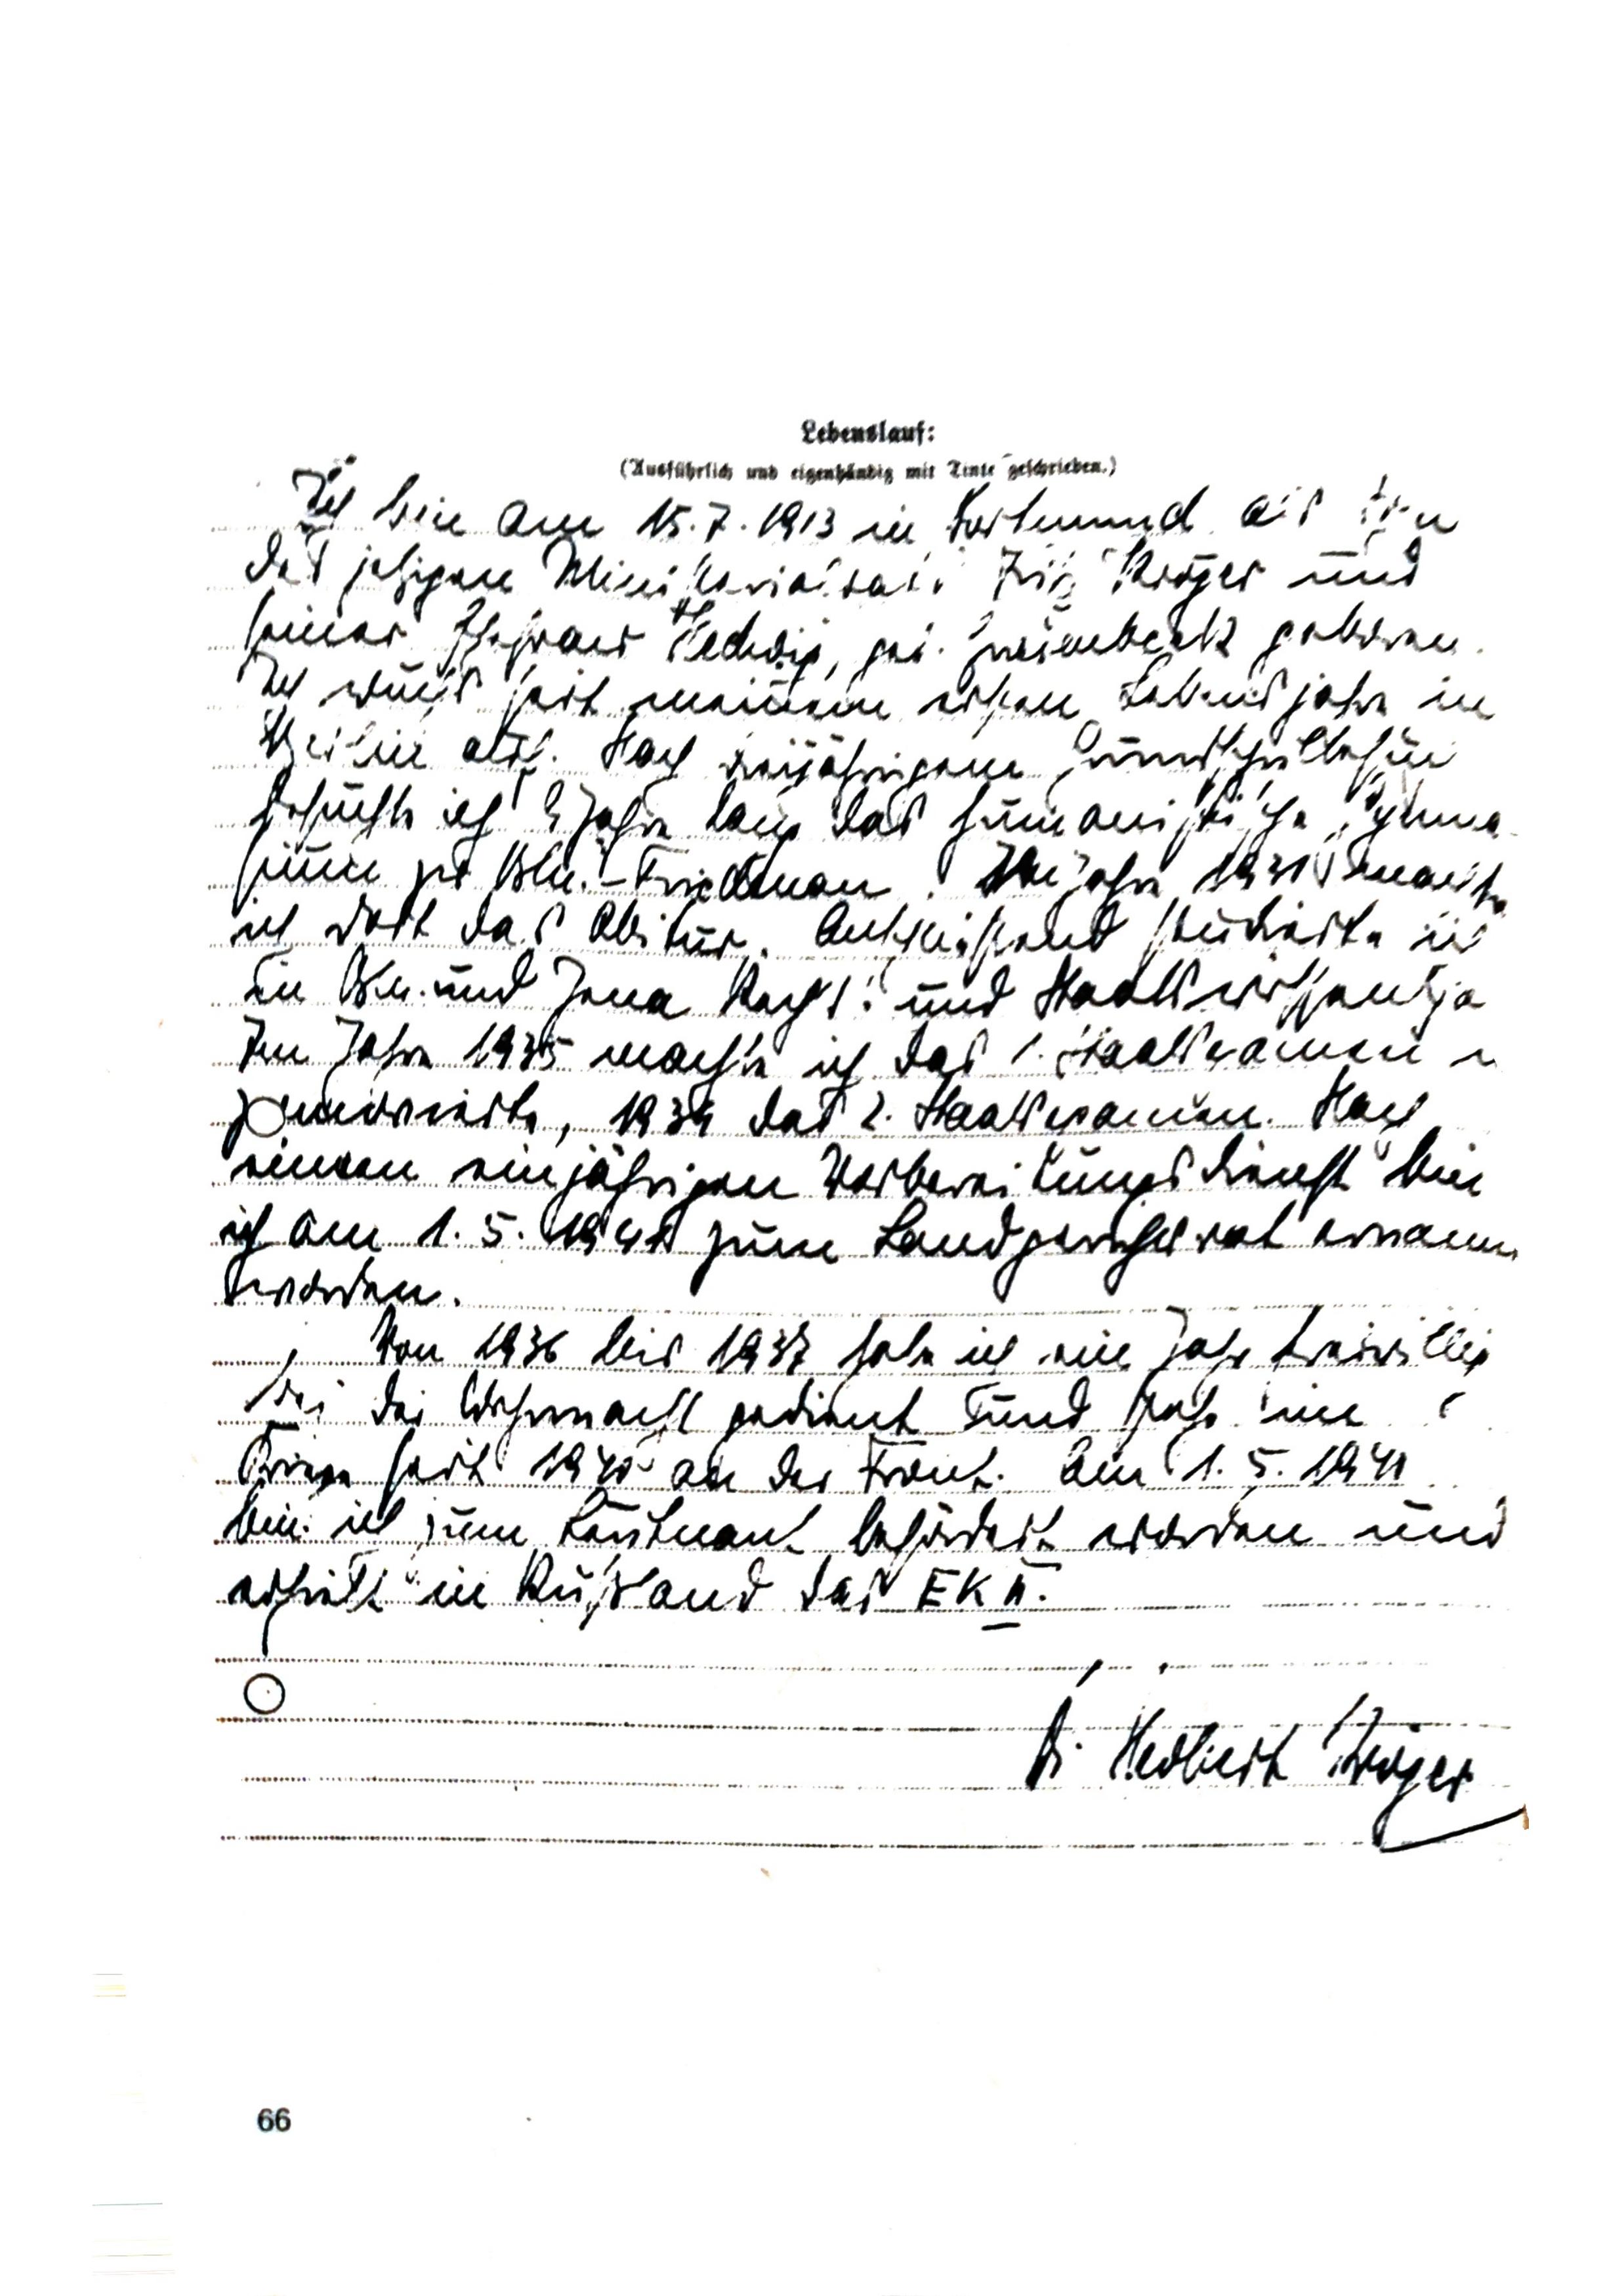 Lebenslauf:
(Ausführlich und eigenhändig mit Tinte geschrieben.)
Ich bin am 15.7.1913 in Dortmund als Sohn
des jetzigen Ministerialrats Fritz Kröger und
seiner Ehefrau Hedwig, geb. geboren.
Ich wuchs seit meinem ersten Lebensjahr in
Berlin auf. Nach dreijährigem Grundschulbesuch
besuchte ich 9 Jahre lang das humanistische Gymna-
sium zu Bln.-Friedenau. Im Jahre 1931 machte
ich dort das Abitur. Anschließend studierte ich
in Bln. und Jena Rechts- und Staatswissenscha
Im Jahre 1935 machte ich das 1. Staatsexamen u
promovierte, 1939 das 2. Staatsexamen. Nach
einem einjährigen Vorbereitungsdienst bin
ich am 1.5.1941 zum Landgerichtsrat ernannt
worden.
Von 1936 bis 1937 habe ich ein Jahr freiwillig
bei der Wehrmacht gedient und stehe im
Kriege seit 1940 an der Front. Am 1.5.1941
bin ich zum Leutnant befördert worden und
erhielt in Rußland das EK II.
Dr. Herbert Kröger
66